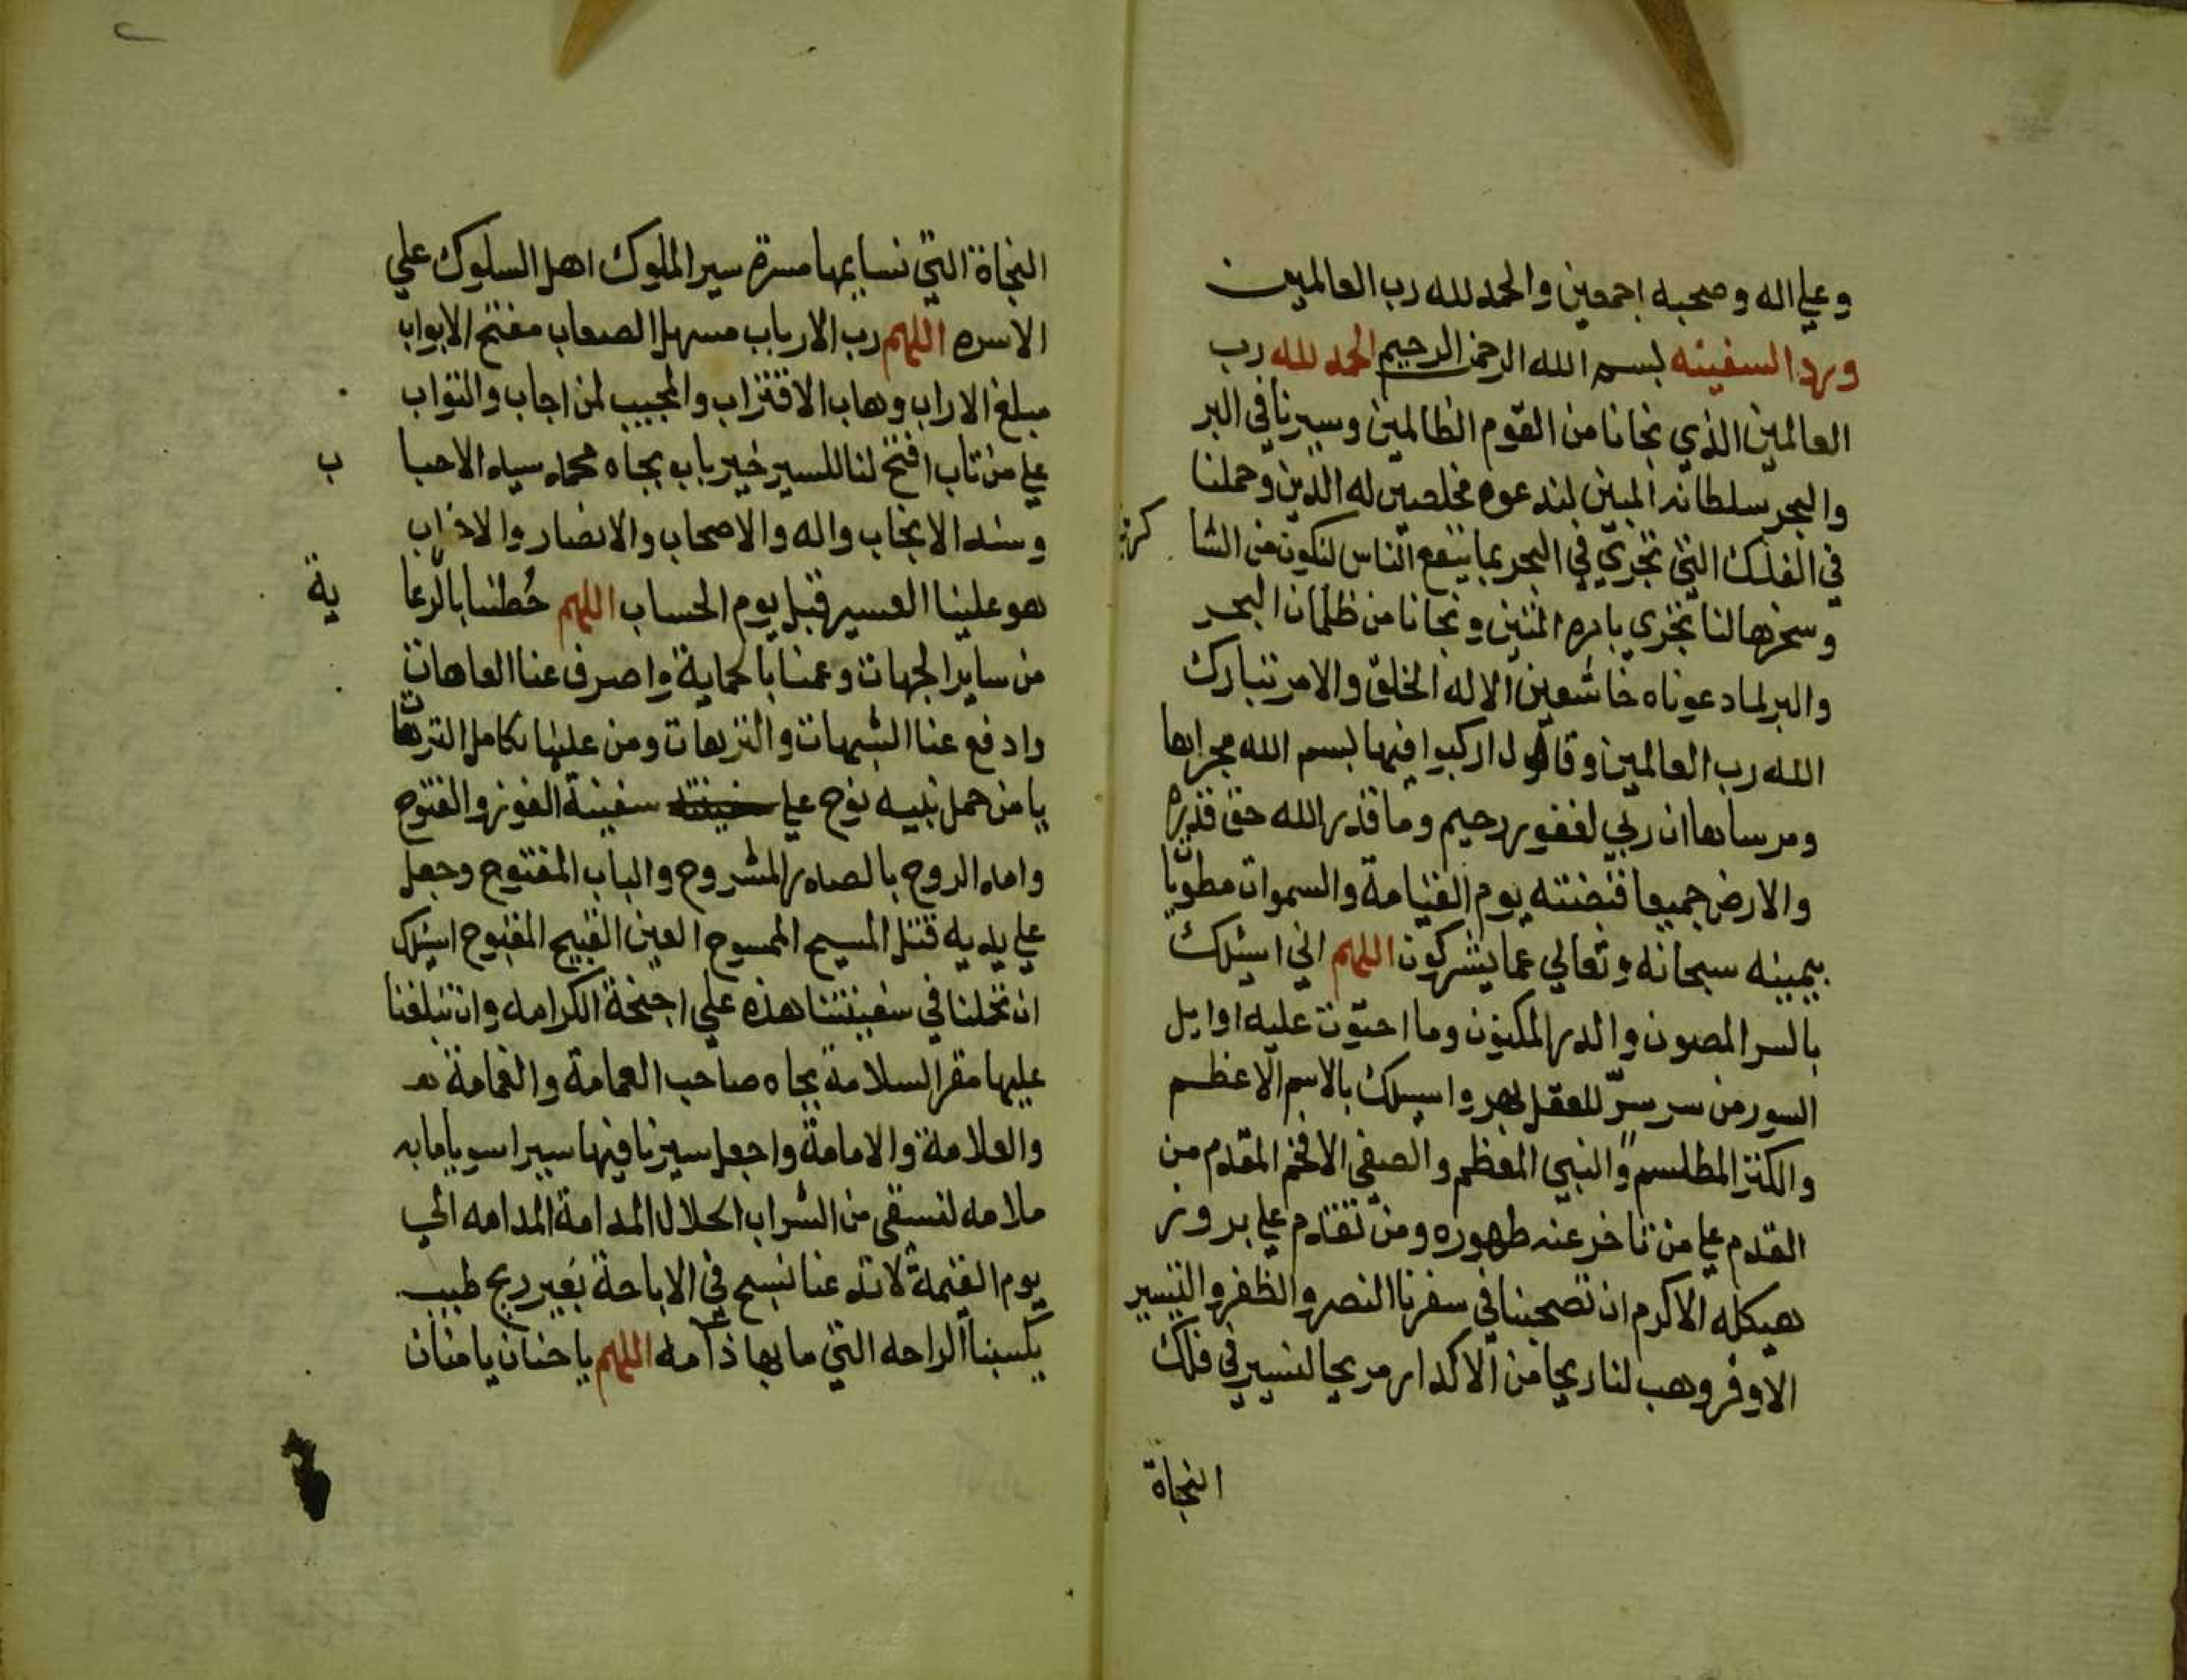 وعلي اله وصحبه اجمعين والحمد لله رب العالمين
ورد السفينه بسم الله الرحمن الرحيم الحمد لله رب
العالمين الذي نجانا من القوم الظالمين وسيرنا في البر
والبحر بسلطانه المبين لندعوه مخلصين له الدين وحملنا
في الفلك التي تجري في البحر بما ينفع الناس لنكون من الشا كرين
وسخرها لنا تجري بامره المتين ونجانا من ظلمات البحر
والبر لما دعوناه خاشعين الا له الخلق والامر تبارك
الله رب العالمين وقال اركبوا فيها بسم الله مجراها
ومرساها ان ربي لغفور رحيم وما قدر الله حق قدره
والارض جميعا قبضته يوم القيامة والسموات مطويات
بيمينه سبحانه وتعالي عما يشركون اللهم اني اسئلك
بالسر المصون والدر المكنون وما احتوت عليه اوايل
السور من سر سرّ للعقل بهر واسيلك بالاسم الاعظم
والكنز المطلسم والنبي المعظم والصفي الافخم المقدم من
القدم علي من تاخر عنه ظهوره ومن تقدم علي بروز
هيكله الاكرم ان تصحبنا في سفرنا النصر والظفر والتيسير
الاوفر وهب لنا ريحا من الاكدار مريحا لنسير في فلك
النجاة
النجاة التي نسايمها مسرة سير الملوك اهل السلوك علي
الاسره اللهم رب الارباب مسهل الصعاب مفتح الابواب
مبلغ الاراب وهاب الاقتراب والمجيب لمن اجاب والتواب
علي من تاب افتح لنا للسير خير باب بجاه محمد سيد الاحبا ب
وسند الانجاب واله والاصحاب والانصار والاحزاب
هو علينا العسير قبل يوم الحساب اللهم حُطنا بالرعا ية
من ساير الجهات وعمنا بالحماية واصرف عنا العاهات
وادفع عنا الشبهات والترهات ومن علينا بكامل النزهات
يا من حمل نبيه نوح علي سفينة الفوز والفتوح
وامده الروح بالصدر المشروح والباب المفتوح وجعل
علي يديه قتل المسيح الممسوح العين القبيح المقبوح اسئلك
ان تحملنا في سفينتنا هذه علي اجنحة الكرامه وان تبلغنا
عليها مقر السلامة بجاه صاحب العمامة والغمامة
والعلامة والامامة واجعل سيرنا فيها سيرا سويا ما به
ملامه لنسقي من الشراب الحلال المدامة المدامه الي
يوم القيمة لا تدعنا نسبح في الاباحة بغير ريح طيب
يكسبنا الراحه التي ما بها ذآمه اللهم يا حنان يا منان